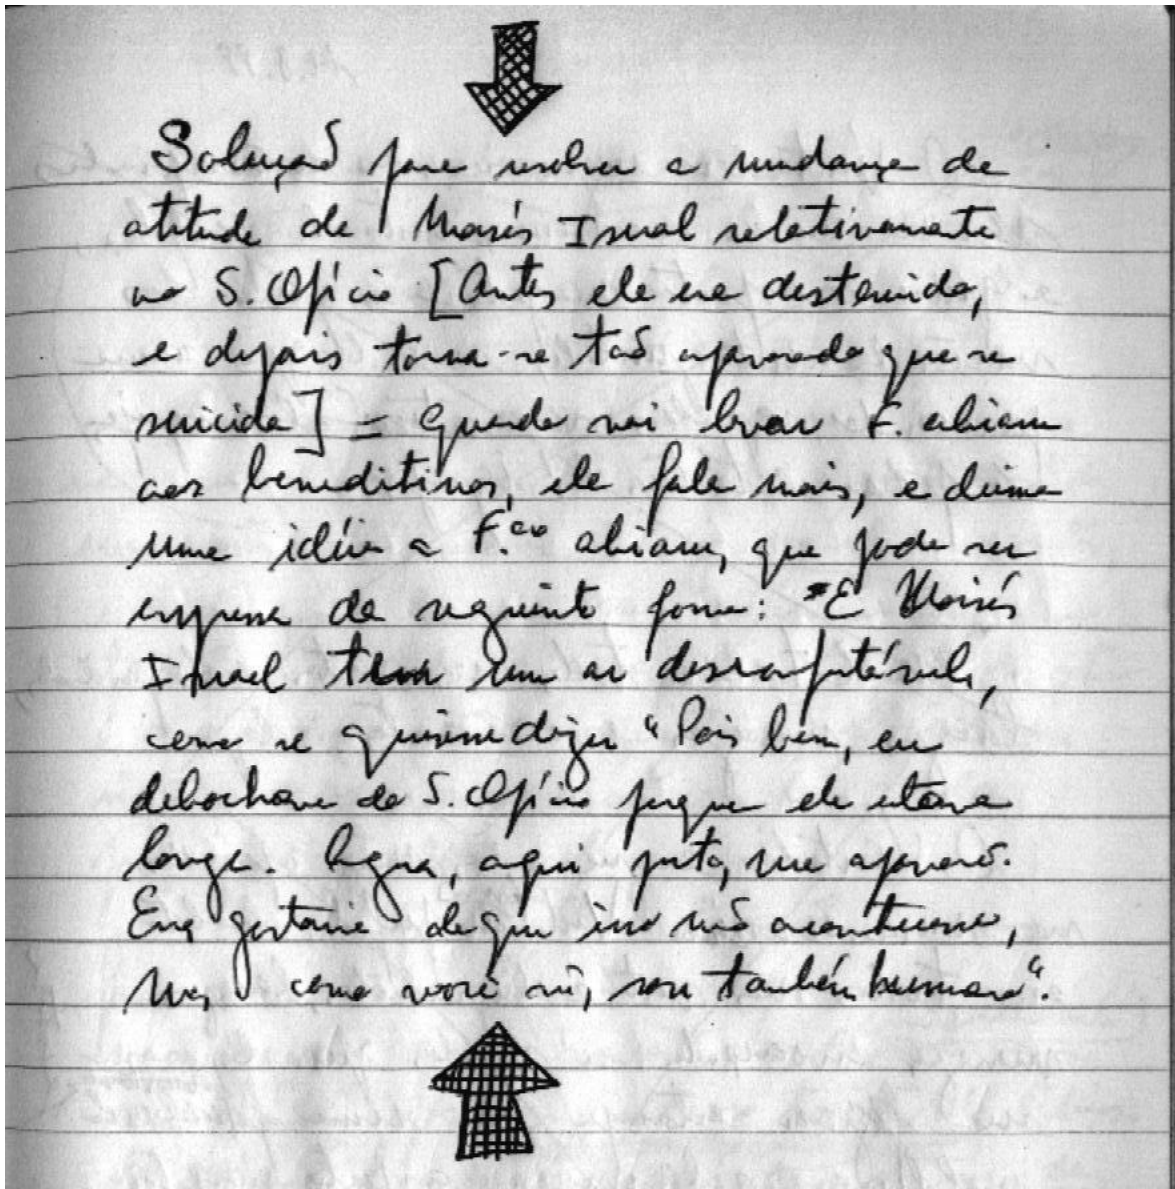 Solução para resolver a mudança de
atitude de Moisés Israel relativamente
ao S. Ofício [Antes ele era destemido,
e depois torna-se tão apavorado que se
suicida] = Quando vai levar F. abiam
aos beneditinos, ele fala mais, e deixa
uma idéia a F.co abiam, que pode ser
expressa da seguinte forma: "E Moisés
Israel tinha um ar desconfortável,
como se quisesse dizer "Pois bem, eu
debochava do S. Ofício porque ele estava
longe. Agora, aqui perto, me apavora.
Eu gostaria de que isso não acontecesse,
Mas, como você vê, sou também humano".